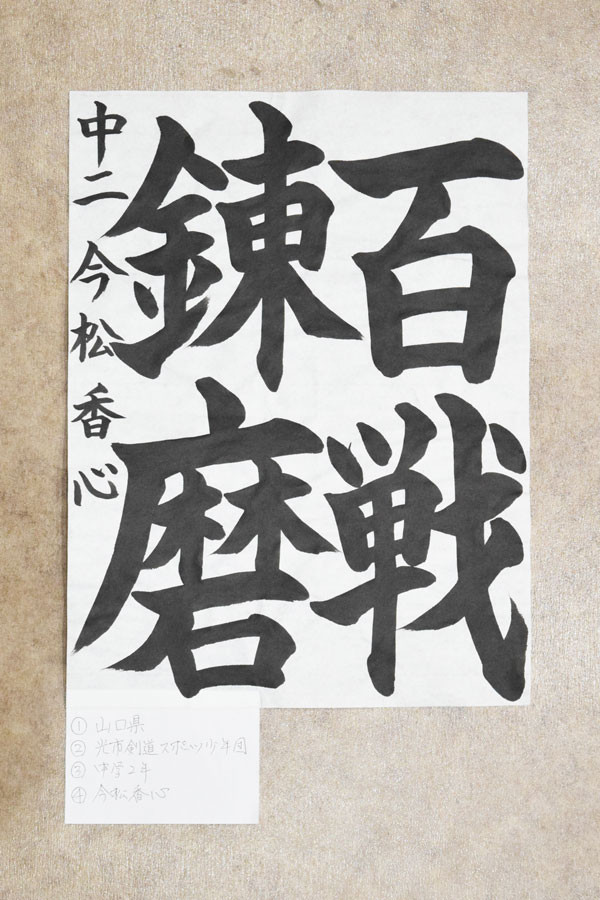 百戦
錬磨
中二 今松香心
① 山口県
② 光市剣道スポーツ少年団
③ 中学2年
④ 今松香心